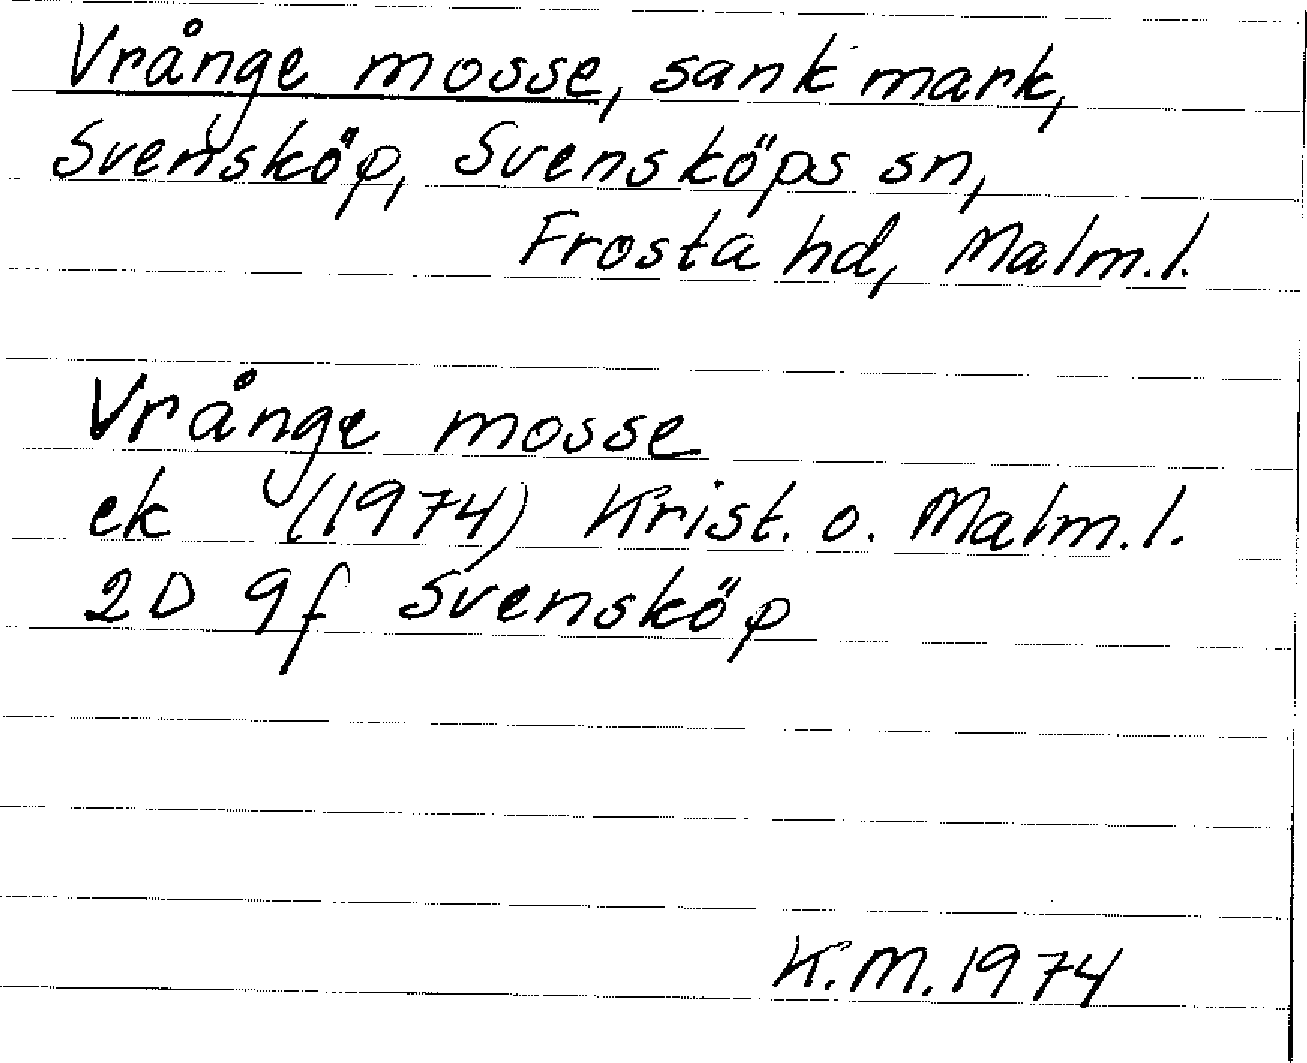 Vrånge mosse, sank mark,
Svensköp, Svensköps sn,
Frosta hd, Malm.l.
Vrånge mosse
ek (1974) Krist. o. Malm.l.
2D 9f Svensköp
K.M. 1974